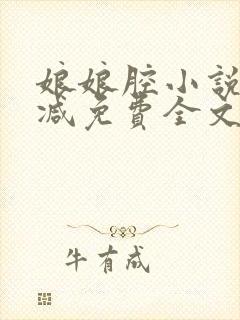 娘娘腔小說
减免費全文
牛有成